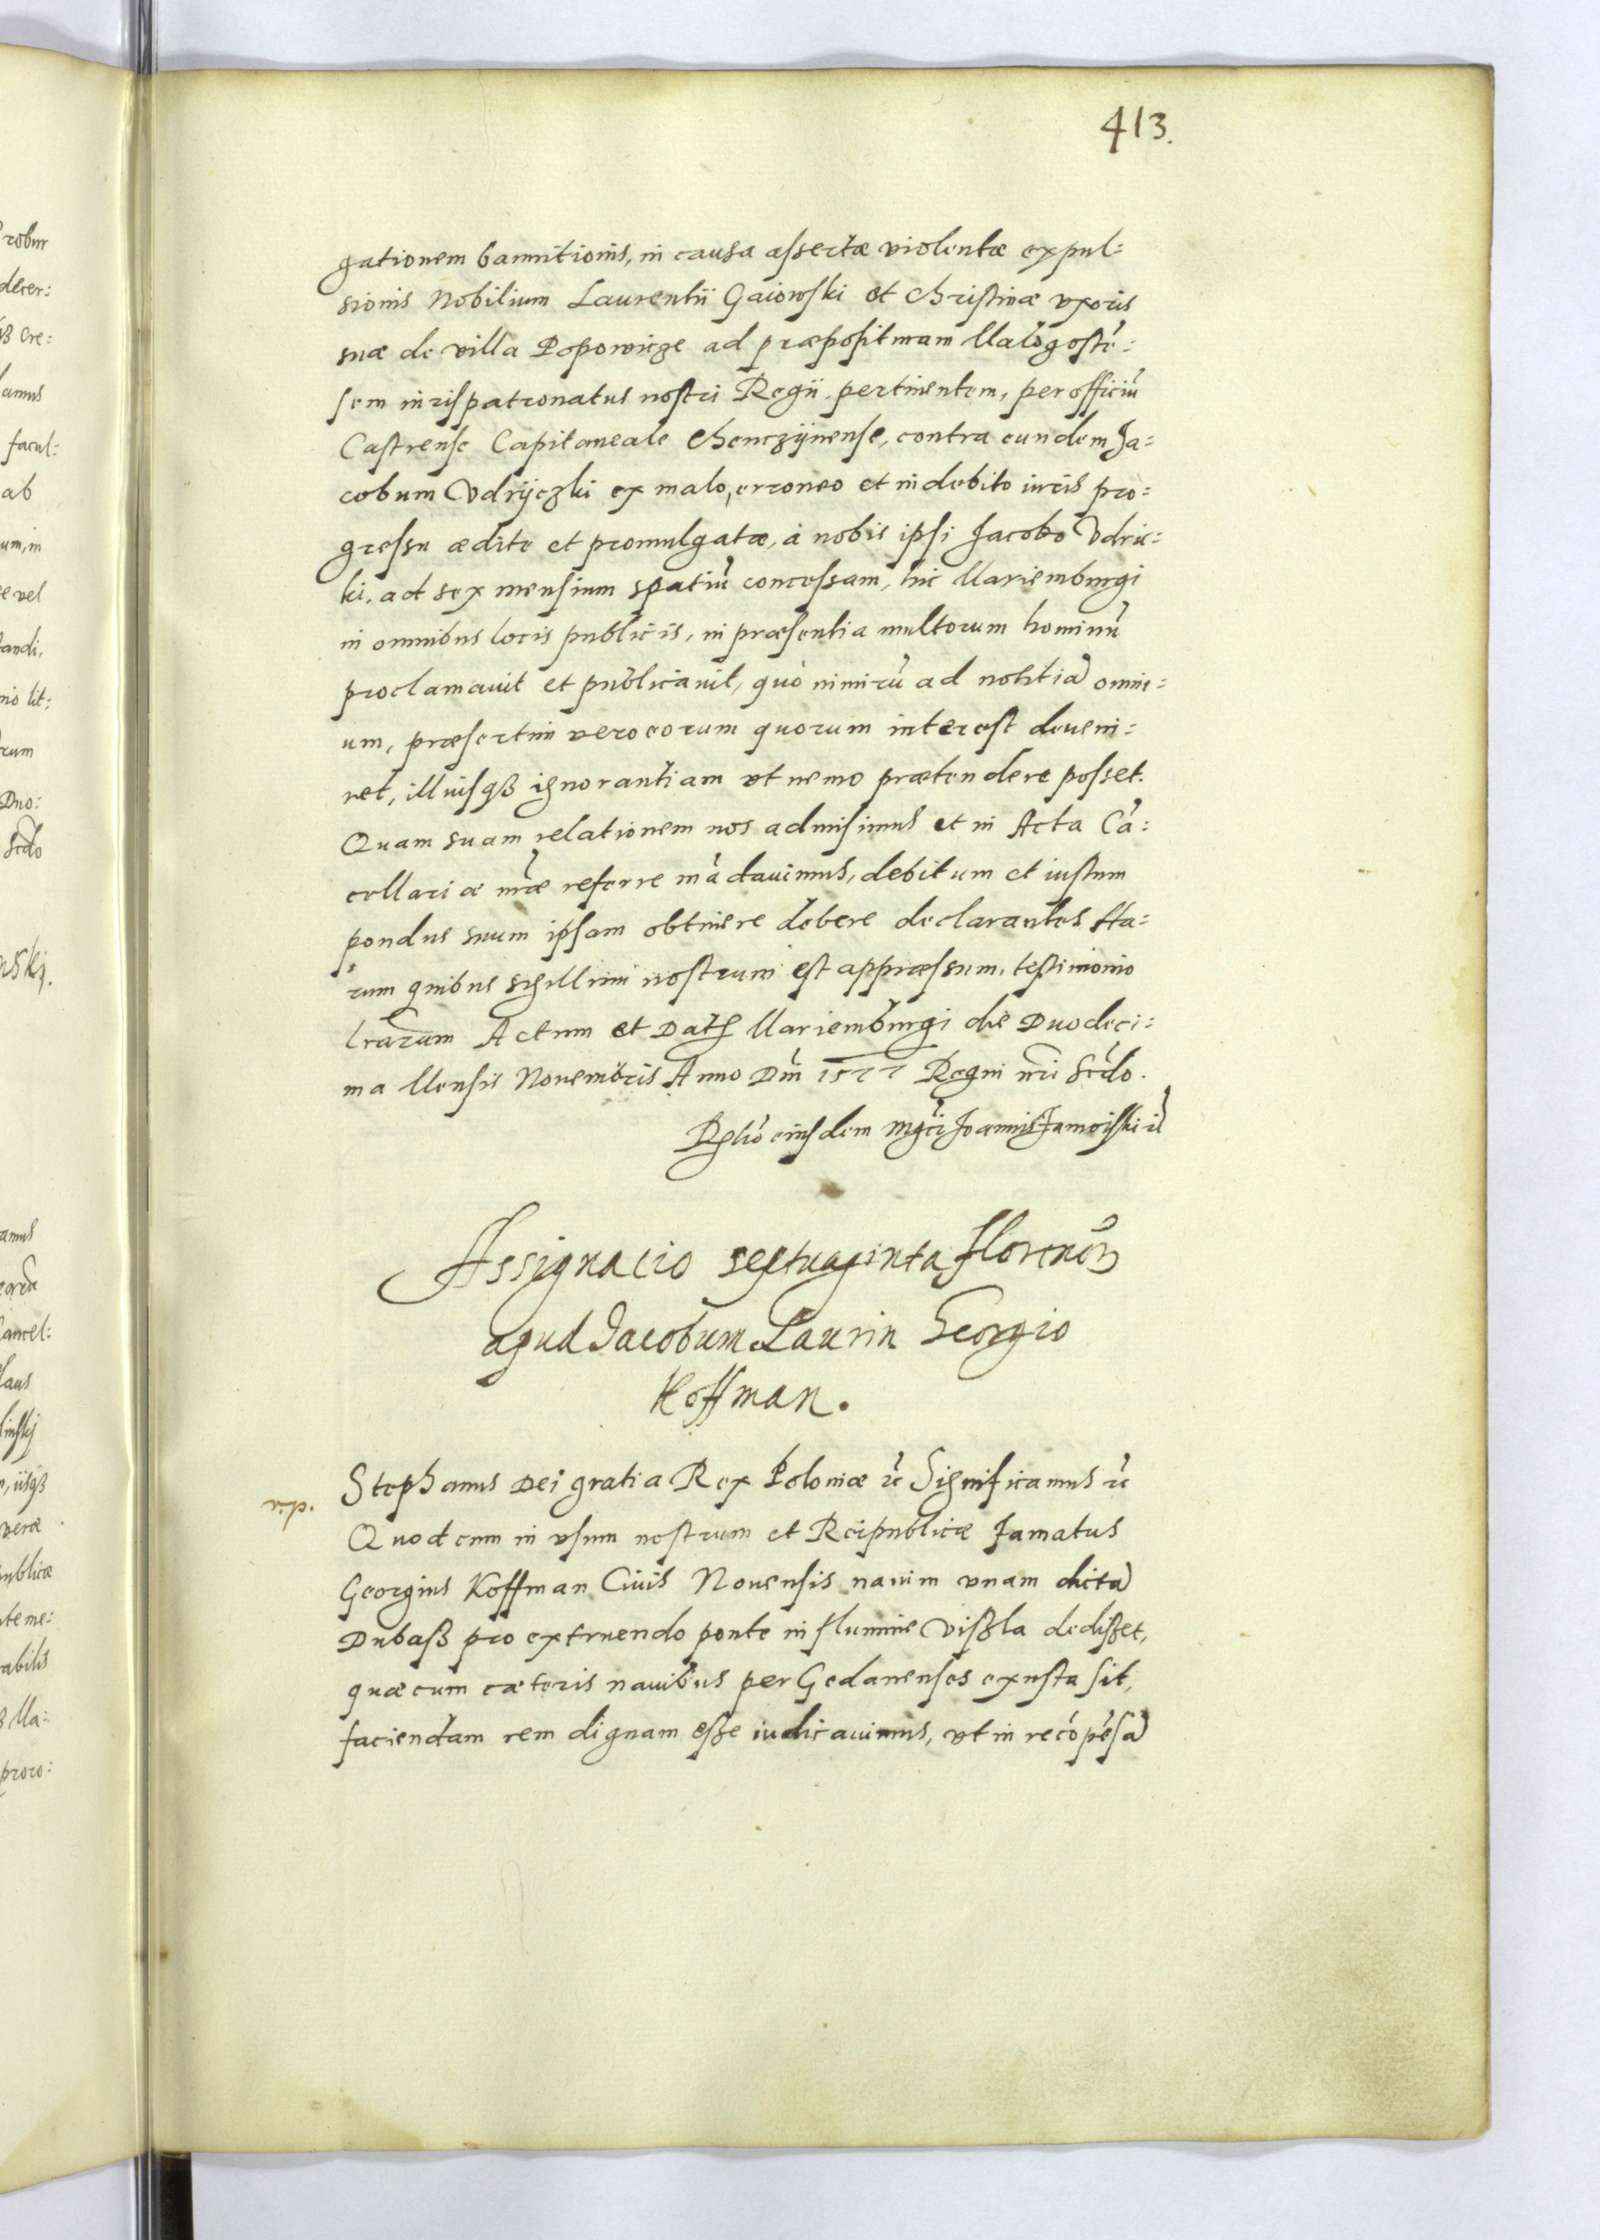 413.
gationem bannitionis, in causa assertæ violentæ expul=
sionis Nobilium Laurentii Gaiowski et Christinæ uxoris
suæ de villa Popowicze ad præposituram Malogostē=
sem iurispatronatus nostri Regii pertinentem, per officiū
Castrense Capitaneale Chenczÿnense, contra eundem Ja=
cobum Vdrÿczki ex malo, erroneo et indebito iuris pro=
gressu ædite et promulgatæ, à nobis ipsi Jacobo Vdric=
ki, ad sex mensium spatiū concessam, hic Mariemburgi
in omnibus locis publicis, in præsentia multorum hominū
proclamauit et publicauit, quò nimirū ad notitiā omni=
um, præsertim vero eorum quorum interest deueni=
ret, illiusqꝫ ignorantiam vt nemo prætendere posset.
Quam suam relationem nos admisimus et in Acta Cā=
cellariæ nr̄æ referre mādauimus, debitum et iustum
pondus suum ipsam obtinere debere declarantes Ha=
rum quibus sigillum nostrum est appræssum, testimonio
lrarum Actum et Datꝫ Mariemburgi die Duodeci=
ma Mensis Nouembris Anno Dm̄ 1577 Regni nr̄i Scdo.
Rel̄io eiusdem Mgci Joannis Zamoiski ꝛc̄
Assignacio septuaginta florenor̄
apud Jacobum Laurin Georgio
Koffman.
Stephanus Dei gratia Rex Poloniæ ꝛc̄ Significamus ꝛc̄
Quod cum in vsum nostrum et Reipublicæ famatus
Georgius Koffman Ciuis Nouensis nauim vnam dictā
Dubasß pro extruendo ponte in flumine Viszla dediszet,
quæ cum cæteris nauibus per Gedanenses exusta sit,
faciendam rem dignam esze iudicauimus, vt in recōpēsā